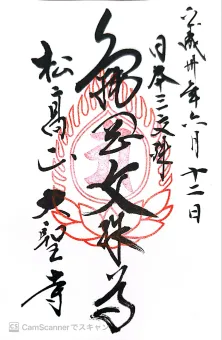 平成卅年六月十二日
日本三文殊
亀岡文殊尊
松高山大聖寺
CamScannerでスキャン